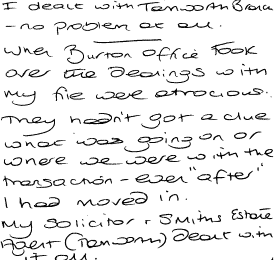 I dealt with Tamworth Branch
- no problem at all.
When Burton office took
over the dealings with
my file were atrocious.
They hadn't got a clue
what was going on or
where we were with the
transaction - even "after"
I had moved in.
My solicitor + Smiths Estate
Agent (Tamworth) dealt with
it all.